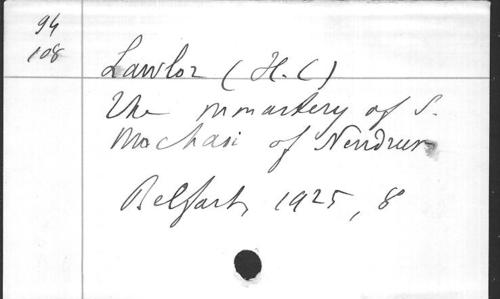 94
108
Lawlor (H. C)
The monastery of S.
Mochaoi of Nendrum
Belfast, 1925, 8